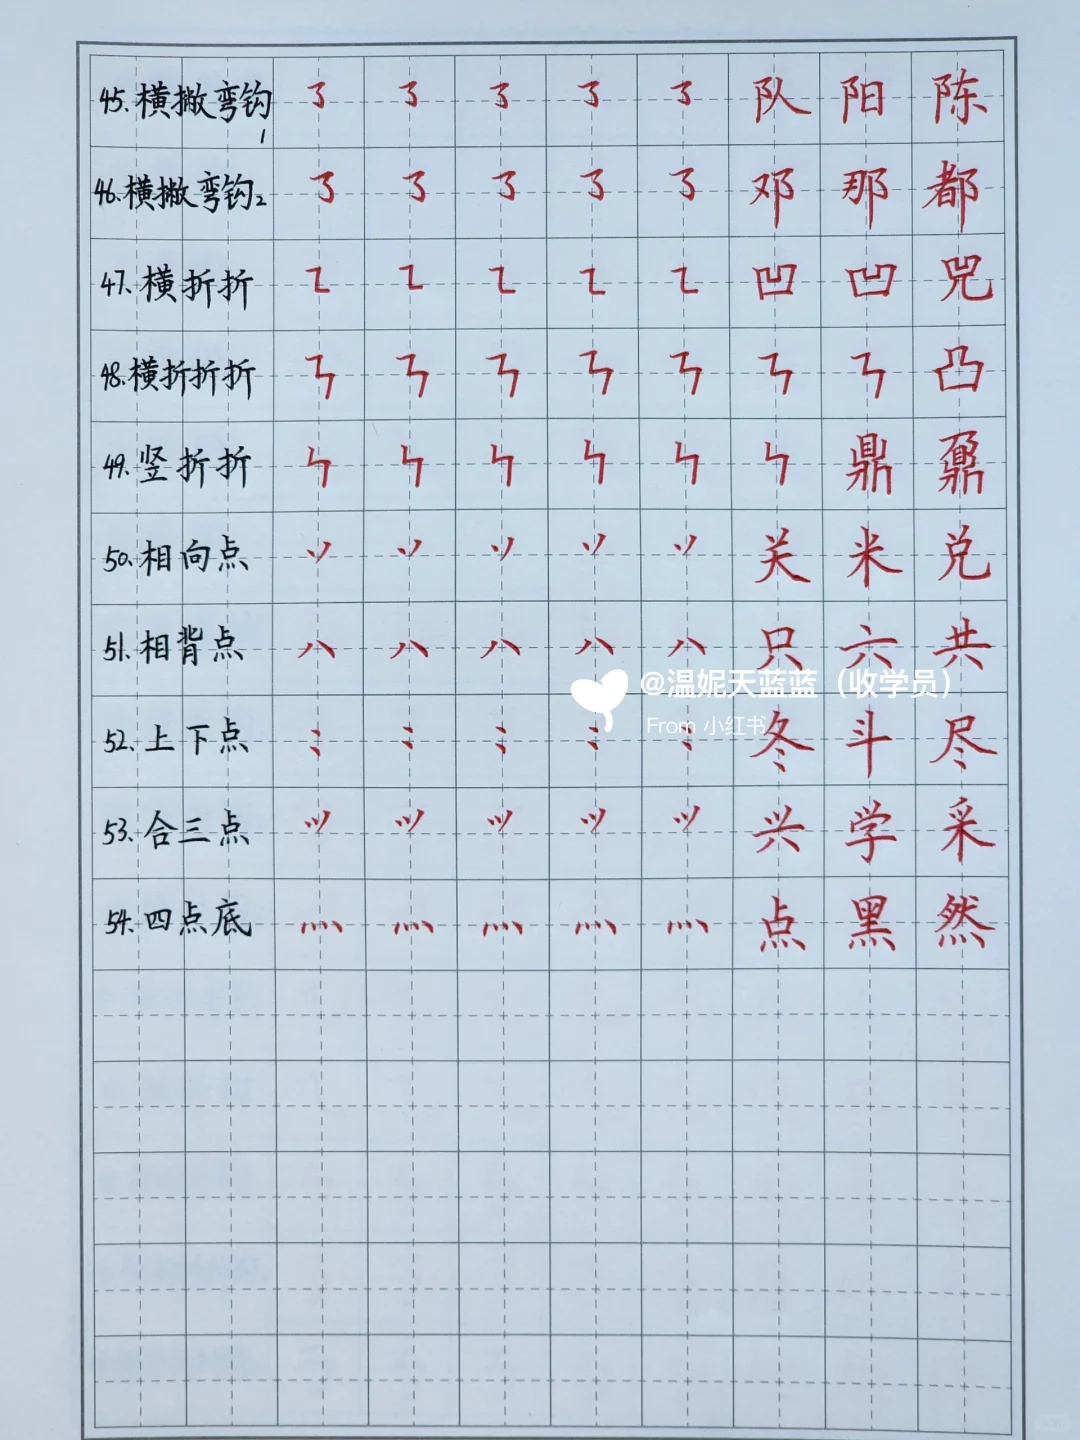 45.横撇弯钩1 ㇌ ㇌ ㇌ ㇌ ㇌ 队 阳 陈
46.横撇弯钩2 ㇌ ㇌ ㇌ ㇌ ㇌ 邓 那 都
47.横折折 ㇅ ㇅ ㇅ ㇅ ㇅ 凹 凹 兕
48.横折折折 ㇎ ㇎ ㇎ ㇎ ㇎ ㇎ ㇎ 凸
49.竖折折 ㇞ ㇞ ㇞ ㇞ ㇞ ㇞ 鼎 鼐
50.相向点 丷 丷 丷 丷 丷 关 米 兑
51.相背点 八 八 八 八 八 只 六 共
@温妮天蓝蓝（收学员）
From 小红书
52.上下点 ⺀ ⺀ ⺀ ⺀ ⺀ 冬 斗 尽
53.合三点 ⺍ ⺍ ⺍ ⺍ ⺍ 兴 学 采
54.四点底 灬 灬 灬 灬 灬 点 黑 然